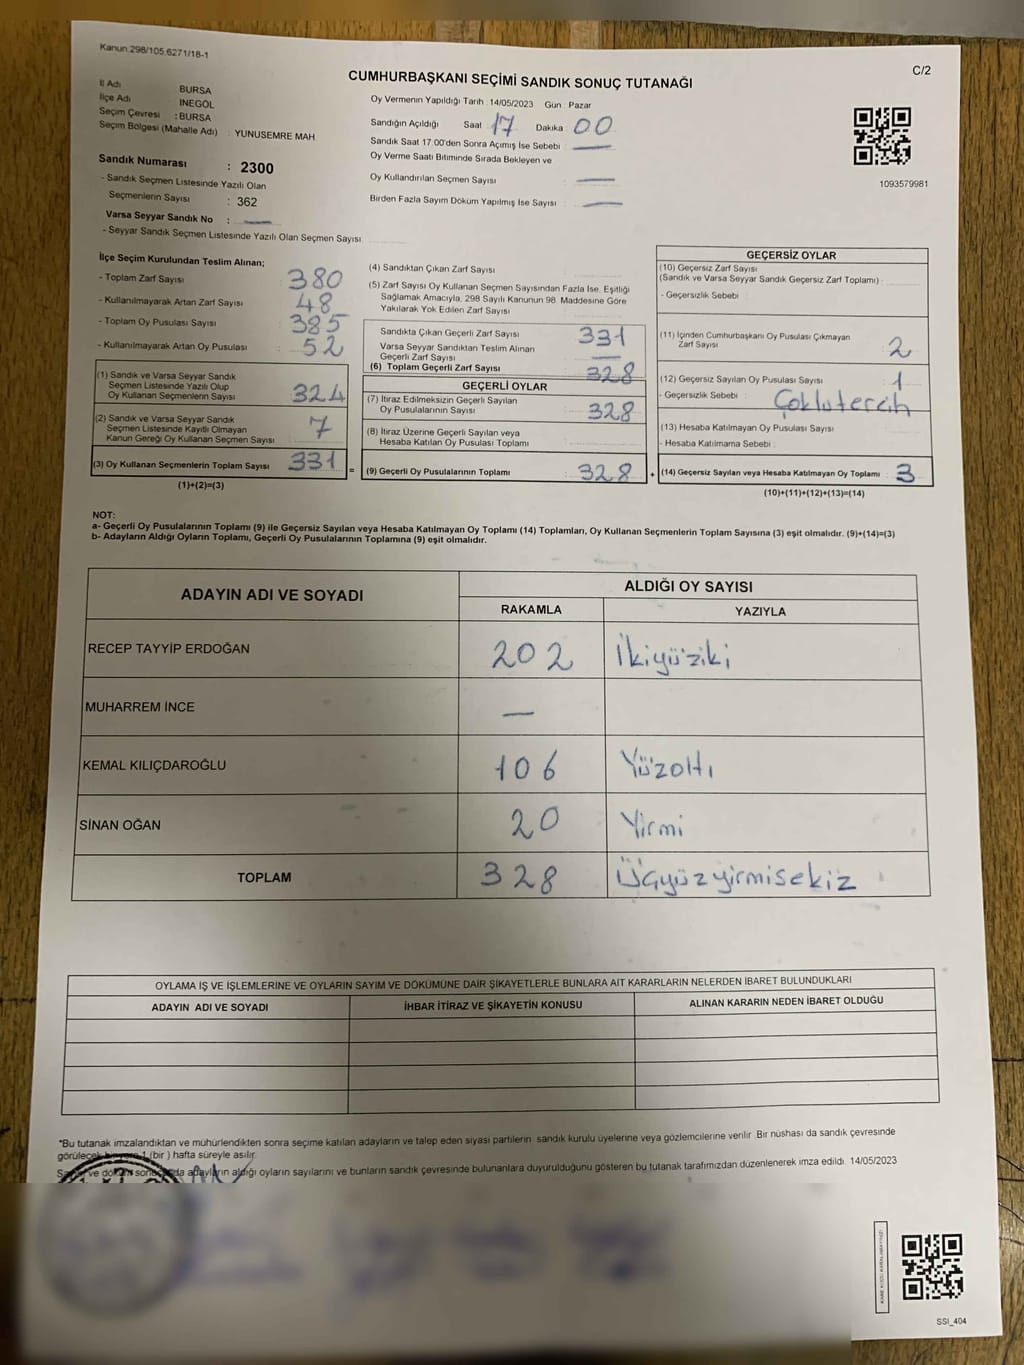 Kanun:298/105.6271/18-1
C/2
CUMHURBAŞKANI SEÇİMİ SANDIK SONUÇ TUTANAĞI
İl Adı BURSA
İlçe Adı İNEGÖL
Seçim Çevresi : BURSA
Seçim Bölgesi (Mahalle Adı) : YUNUSEMRE MAH
Sandık Numarası : 2300
- Sandık Seçmen Listesinde Yazılı Olan
Seçmenlerin Sayısı : 362
Varsa Seyyar Sandık No : —
- Seyyar Sandık Seçmen Listesinde Yazılı Olan Seçmen Sayısı
Oy Vermenin Yapıldığı Tarih : 14/05/2023 Gün Pazar
Sandığın Açıldığı Saat 17 Dakika 00
Sandık Saat 17.00'den Sonra Açımış İse Sebebi : —
Oy Verme Saati Bitiminde Sırada Bekleyen ve
Oy Kullandırılan Seçmen Sayısı : —
Birden Fazla Sayım Döküm Yapılmış İse Sayısı : —
1093579981
İlçe Seçim Kurulundan Teslim Alınan;
- Toplam Zarf Sayısı : 380
- Kullanılmayarak Artan Zarf Sayısı : 48
- Toplam Oy Pusulası Sayısı : 385
- Kullanılmayarak Artan Oy Pusulası : 52
(1) Sandık ve Varsa Seyyar Sandık
Seçmen Listesinde Yazılı Olup
Oy Kullanan Seçmenlerin Sayısı : 324
(2) Sandık ve Varsa Seyyar Sandık
Seçmen Listesinde Kayıtlı Olmayan
Kanun Gereği Oy Kullanan Seçmen Sayısı : 7
(3) Oy Kullanan Seçmenlerin Toplam Sayısı : 331
(1)+(2)=(3)
(4) Sandıktan Çıkan Zarf Sayısı
(5) Zarf Sayısı Oy Kullanan Seçmen Sayısından Fazla İse, Eşitliği
Sağlamak Amacıyla, 298 Sayılı Kanunun 98. Maddesine Göre
Yakılarak Yok Edilen Zarf Sayısı
Sandıkta Çıkan Geçerli Zarf Sayısı : 331
Varsa Seyyar Sandıktan Teslim Alınan
Geçerli Zarf Sayısı : —
(6) Toplam Geçerli Zarf Sayısı : 328
GEÇERLİ OYLAR
(7) İtiraz Edilmeksizin Geçerli Sayılan
Oy Pusulalarının Sayısı : 328
(8) İtiraz Üzerine Geçerli Sayılan veya
Hesaba Katılan Oy Pusulası Toplamı
= (9) Geçerli Oy Pusulalarının Toplamı : 328 +
GEÇERSİZ OYLAR
(10) Geçersiz Zarf Sayısı
(Sandık ve Varsa Seyyar Sandık Geçersiz Zarf Toplamı) :
- Geçersizlik Sebebi :
(11) İçinden Cumhurbaşkanı Oy Pusulası Çıkmayan
Zarf Sayısı : 2
(12) Geçersiz Sayılan Oy Pusulası Sayısı : 1
- Geçersizlik Sebebi : Çoklutercih
(13) Hesaba Katılmayan Oy Pusulası Sayısı
- Hesaba Katılmama Sebebi :
(14) Geçersiz Sayılan veya Hesaba Katılmayan Oy Toplamı : 3
(10)+(11)+(12)+(13)=(14)
NOT:
a- Geçerli Oy Pusulalarının Toplamı (9) ile Geçersiz Sayılan veya Hesaba Katılmayan Oy Toplamı (14) Toplamları, Oy Kullanan Seçmenlerin Toplam Sayısına (3) eşit olmalıdır. (9)+(14)=(3)
b- Adayların Aldığı Oyların Toplamı, Geçerli Oy Pusulalarının Toplamına (9) eşit olmalıdır.
ADAYIN ADI VE SOYADI ALDIĞI OY SAYISI
RAKAMLA YAZIYLA
RECEP TAYYİP ERDOĞAN 202 İkiyüziki
MUHARREM İNCE —
KEMAL KILIÇDAROĞLU 106 Yüzaltı
SİNAN OĞAN 20 Yirmi
TOPLAM 328 Üçyüzyirmisekiz
OYLAMA İŞ VE İŞLEMLERİNE VE OYLARIN SAYIM VE DÖKÜMÜNE DAİR ŞİKAYETLERLE BUNLARA AİT KARARLARIN NELERDEN İBARET BULUNDUKLARI
ADAYIN ADI VE SOYADI İHBAR İTİRAZ VE ŞİKAYETİN KONUSU ALINAN KARARIN NEDEN İBARET OLDUĞU
*Bu tutanak imzalandıktan ve mühürlendikten sonra seçime katılan adayların ve talep eden siyasi partilerin sandık kurulu üyelerine veya gözlemcilerine verilir. Bir nüshası da sandık çevresinde
görülecek bir yere 1 (bir) hafta süreyle asılır.
ve döküm sonucunda adayların aldığı oyların sayılarını ve bunların sandık çevresinde bulunanlara duyurulduğunu gösteren bu tutanak tarafımızdan düzenlenerek imza edildi. 14/05/2023
SSI_404